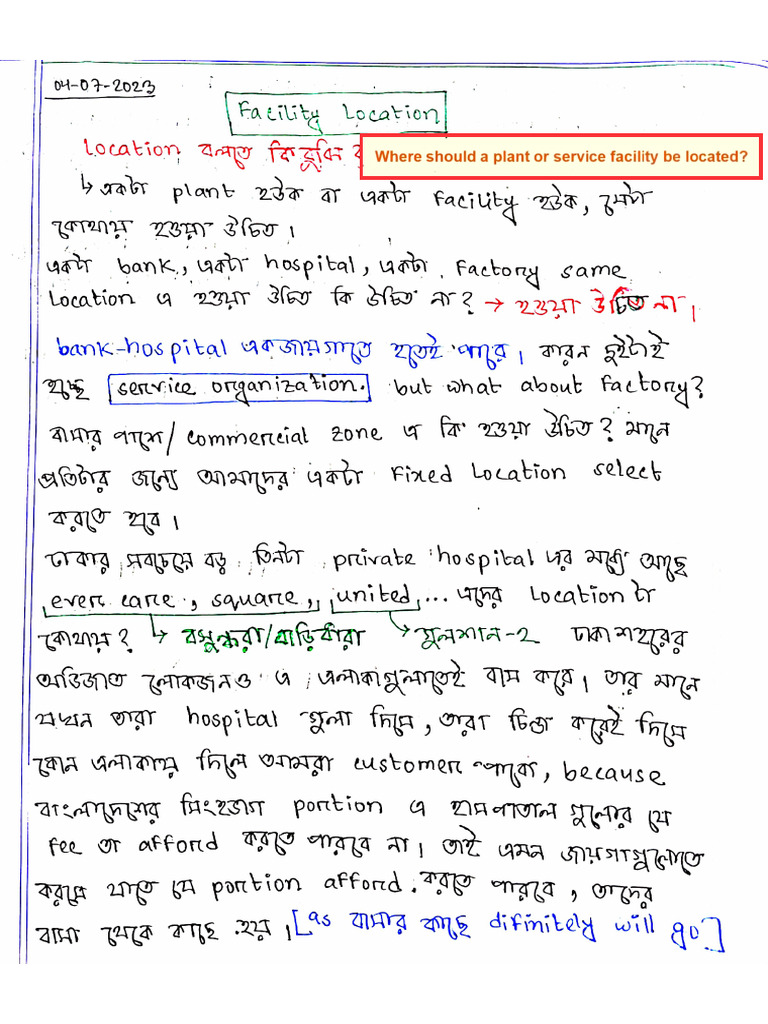 04-07-2023
Facility Location
Location বলতে কি বুঝি
Where should a plant or service facility be located?
↳ একটা plant হউক বা একটা Facility হউক, সেটা
কোথায় হওয়া উচিত।
একটা bank, একটা hospital, একটা Factory same
Location এ হওয়া উচিত কি উচিত না? → হওয়া উচিত না।
bank-hospital একজায়গাতে হতেই পারে। কারন দুইটাই
হচ্ছে service organization. but what about Factory?
বাসার পাশে/commercial zone এ কি হওয়া উচিত? মানে
প্রতিটার জন্যে আমাদের একটা Fixed Location select
করতে হবে।
ঢাকার সবচেয়ে বড় তিনটা private hospital এর মধ্যে আছে
ever care, square, united, ... এদের Location টা
কোথায়? ↳ বসুন্ধরা/বাড়িধারা → গুলশান-২ ঢাকা শহরের
অভিজাত লোকজনও এ এলাকাগুলাতেই বাস করে। তার মানে
যখন তারা hospital গুলা দিসে, তারা চিন্তা করেই দিসে
কোন এলাকায় দিলে আমরা customer পাবো, because
বাংলাদেশের সিংহভাগ portion এ হাসপাতাল গুলোর যে
fee তা afford করতে পারবে না। তাই এমন জায়গাগুলোতে
করসে যাতে যে portion afford করতে পারবে, তাদের
বাসা থেকে কাছে হয়। [as বাসার কাছে difinitely will go.]